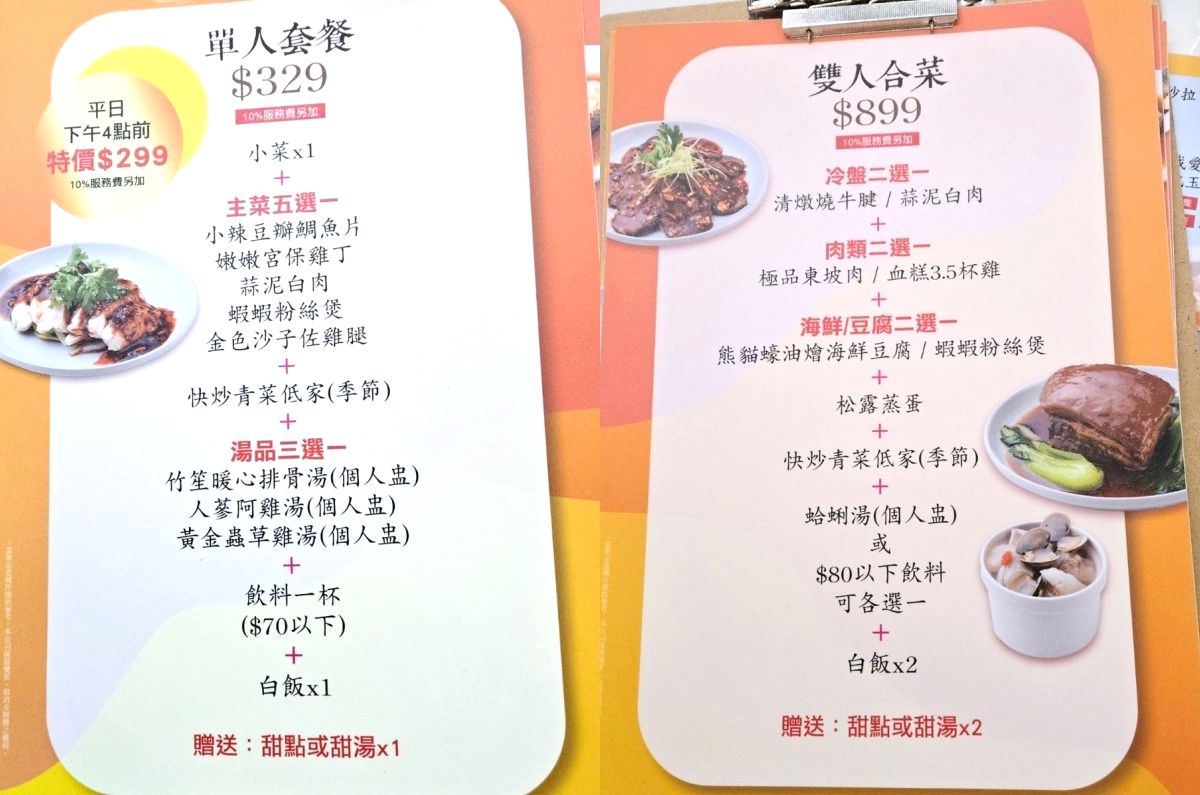 單人套餐
$329
10%服務費另加
平日
下午4點前
特價$299
10%服務費另加
小菜x1
+
主菜五選一
小辣豆瓣鯛魚片
嫩嫩宮保雞丁
蒜泥白肉
蝦蝦粉絲煲
金色沙子佐雞腿
+
快炒青菜低家(季節)
+
湯品三選一
竹笙暖心排骨湯(個人盅)
人蔘阿雞湯(個人盅)
黃金蟲草雞湯(個人盅)
+
飲料一杯
($70以下)
+
白飯x1
贈送：甜點或甜湯x1
雙人合菜
$899
10%服務費另加
冷盤二選一
清燉燒牛腱 / 蒜泥白肉
+
肉類二選一
極品東坡肉 / 血糕3.5杯雞
+
海鮮/豆腐二選一
熊貓蠔油燴海鮮豆腐 / 蝦蝦粉絲煲
+
松露蒸蛋
+
快炒青菜低家(季節)
+
蛤蜊湯(個人盅)
或
$80以下飲料
可各選一
+
白飯x2
贈送：甜點或甜湯x2
沙拉
我愛